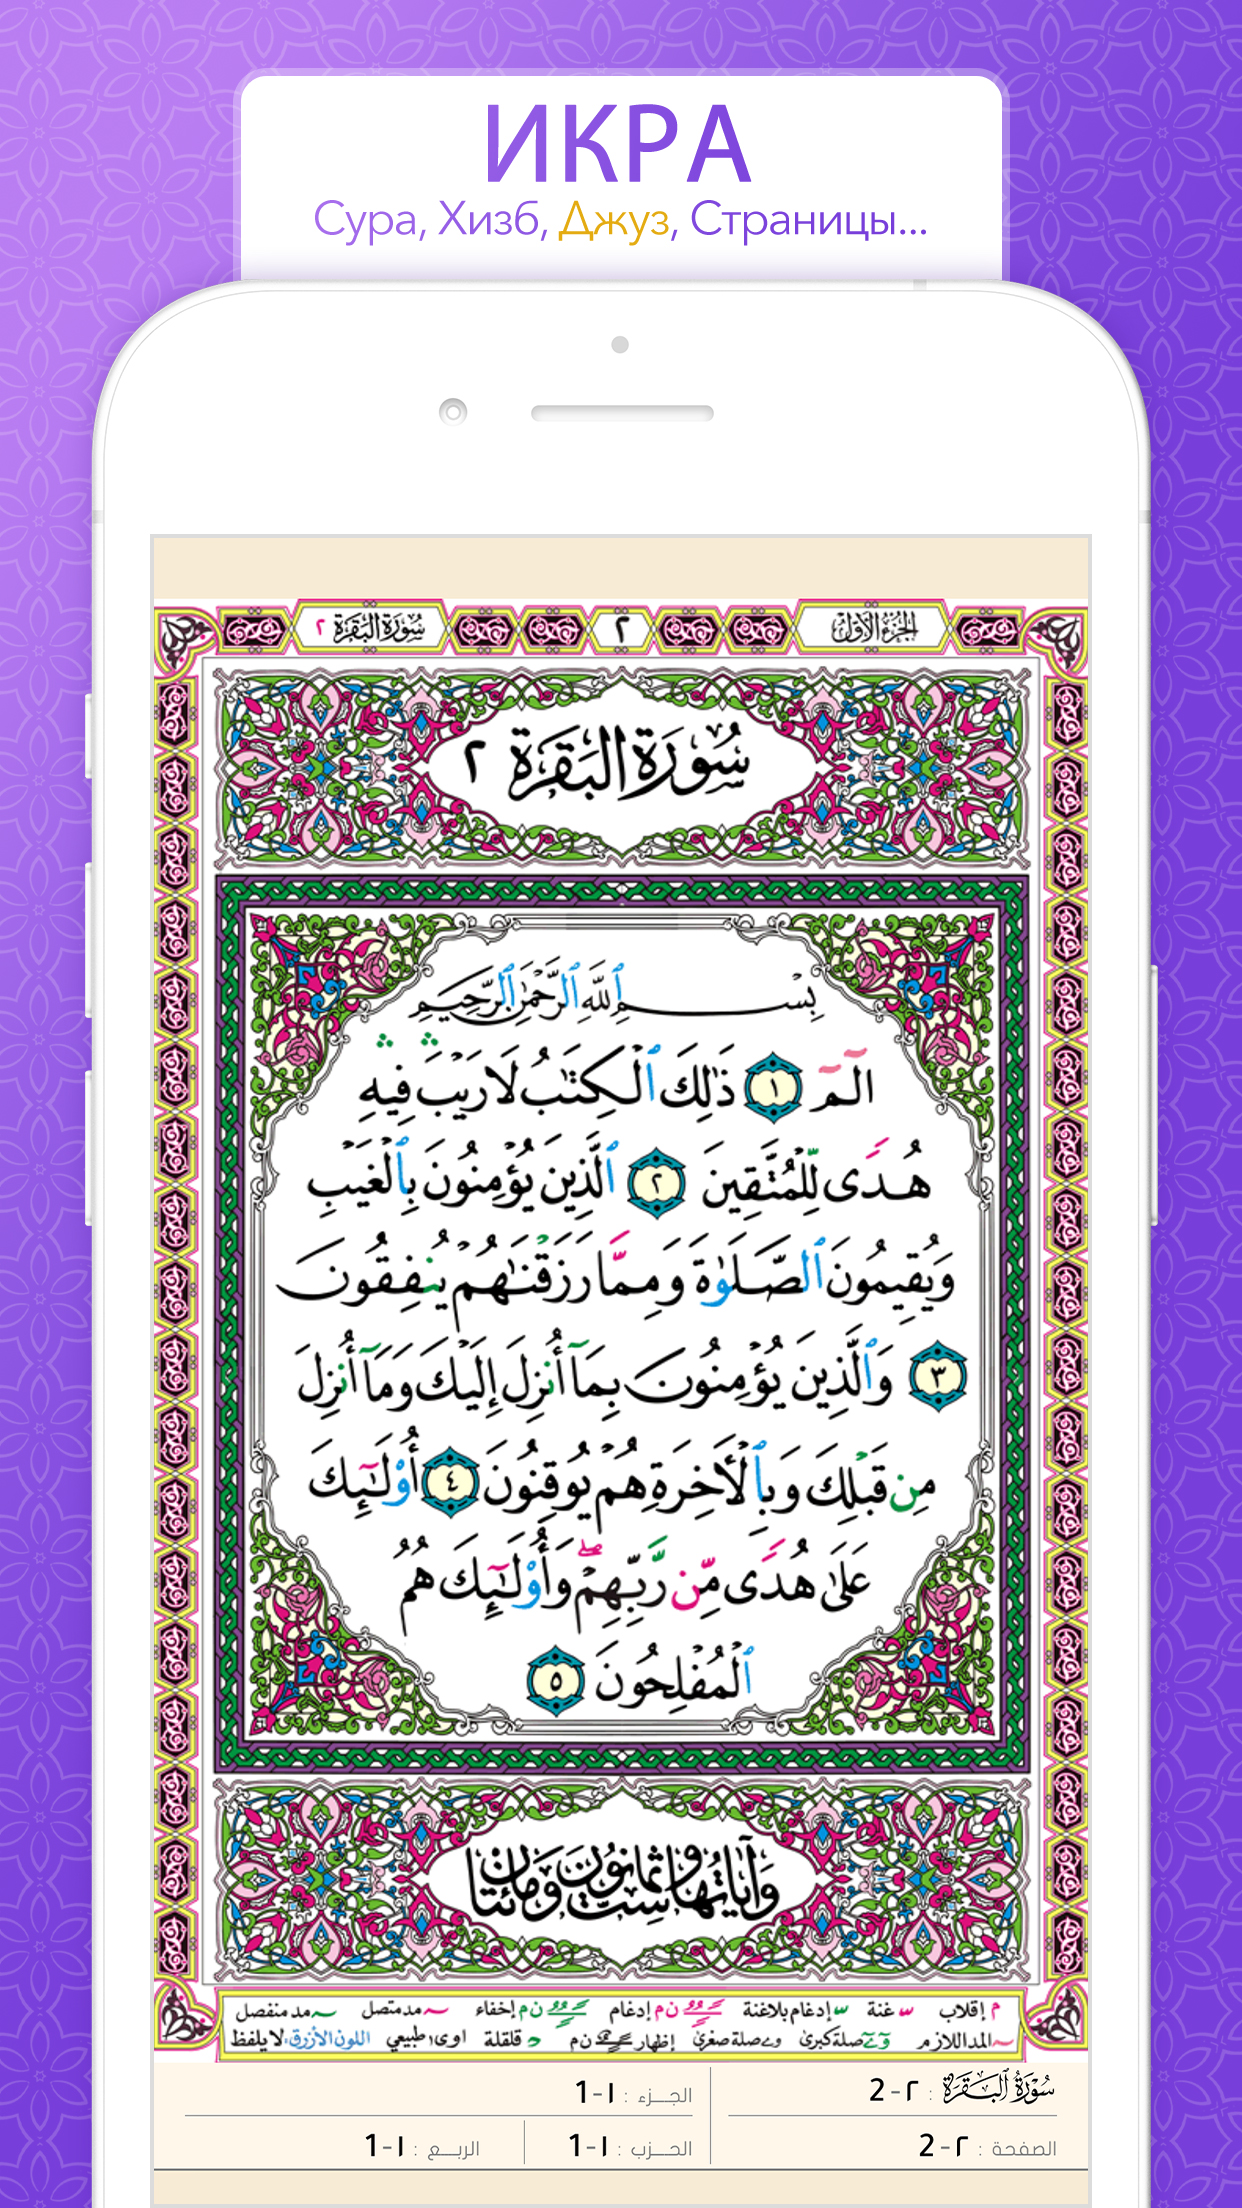 ИКРА
Сура, Хизб, Джуз, Страницы...
الجزء الأول
٢
سورة البقرة ٢
سورة البقرة ٢
بِسْمِ ٱللَّهِ ٱلرَّحْمَٰنِ ٱلرَّحِيمِ
الٓمٓ ١ ذَٰلِكَ ٱلْكِتَٰبُ لَا رَيْبَ ۛ فِيهِ ۛ
هُدًى لِّلْمُتَّقِينَ ٢ ٱلَّذِينَ يُؤْمِنُونَ بِٱلْغَيْبِ
وَيُقِيمُونَ ٱلصَّلَوٰةَ وَمِمَّا رَزَقْنَٰهُمْ يُنفِقُونَ
٣ وَٱلَّذِينَ يُؤْمِنُونَ بِمَآ أُنزِلَ إِلَيْكَ وَمَآ أُنزِلَ
مِن قَبْلِكَ وَبِٱلْأَخِرَةِ هُمْ يُوقِنُونَ ٤ أُوْلَٰٓئِكَ
عَلَىٰ هُدًى مِّن رَّبِّهِمْ ۖ وَأُوْلَٰٓئِكَ هُمُ
ٱلْمُفْلِحُونَ ٥
وآياتها ست وثمانون ومائتان
م إقلاب غنة إدغام بلاغنة ن م إدغام ن م إخفاء مد متصل مد منفصل
المد اللازم صلة كبرى صلة صغرى إظهار ن م قلقلة اوى طبيعي اللون الأزرق: لا يلفظ
سُورَةُ ٱلْبَقَرَة : ٢-2
الجزء : ١-1
الصفحة : ٢-2
الحزب : ١-1
الربع : ١-1